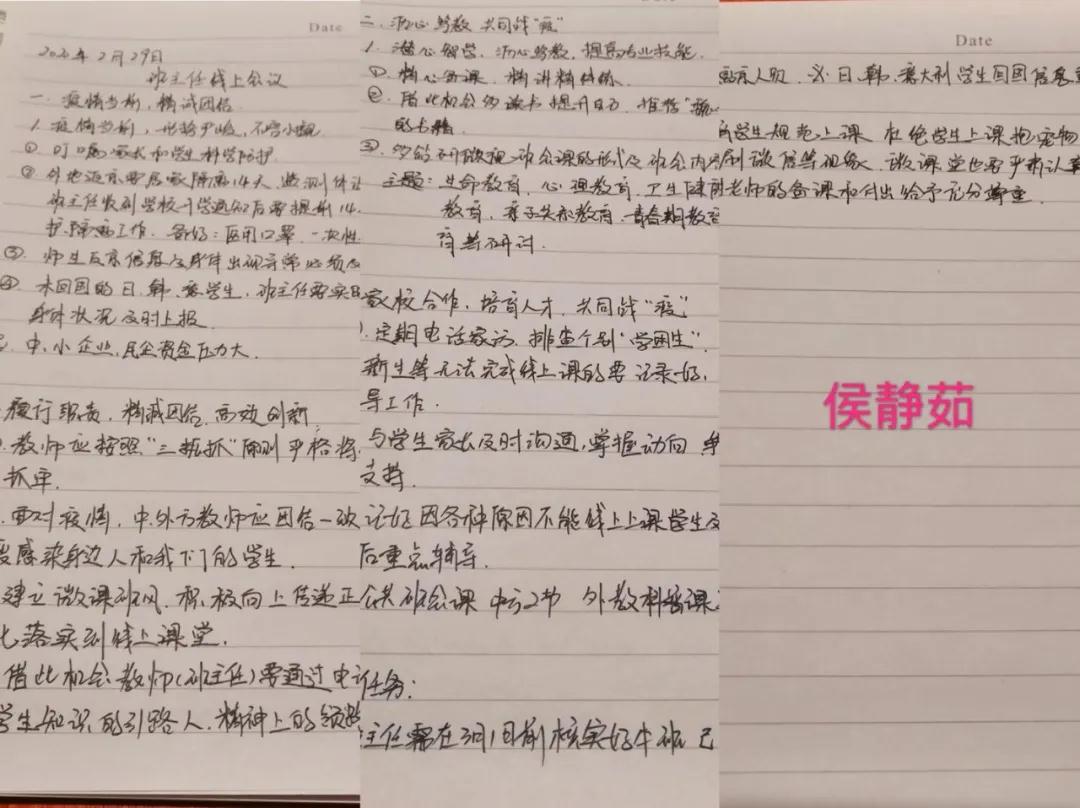 Date
2020年2月29日
班主任线上会议
一、疫情当前,精诚团结
1. 疫情当前,形势严峻,不容小觑
① 叮嘱家长和学生科学防护
② 外地返京要居家隔离14天,监测体
班主任收到学校开学通知后要提前14
护 工作. 备好:医用口罩、一次性
③ 师生反京信息及身体出现异常必须及
④ 未回国的日、韩、意学生,班主任要实
身体状况及时上报.
中、小企业,民企资金压力大.
履行职责,精诚团结,高效创新
教师应按照“三抓抓”原则严格将
抓牢.
面对疫情,中.外方教师应团结一致
感染身边人和我们的学生.
建立微课班风,积极向上传递正
化落实到线上课堂.
借此机会教师(班主任)要通过电
学生知识的引路人.精神上的领
二、沥心骛教 共同战“疫”
1. 潜心智学,沥心骛教,提高专业技能.
① 精心备课,精讲精练.
② 借此机会多读书提升自己,推荐
的书籍.
③ 班会课的形式及班会内
主题:生命教育,心理教育,卫生健
教育,亲子关系教育,青春期教育
育等研讨.
家校合作,培育人才,共同战“疫”
1. 定期电话家访,排查个别“学困生”.
新生等无法完成线上课的要记录好,
导工作.
与学生家长及时沟通,掌握动向
支持.
记好因各种原因不能线上上课学生
后重点辅导.
公共班会课 2节 外教科普课
任务:
主任需在3月1日前核实好本班已
Date
返京人员,义.日.韩.意大利学生回国信息
学生规范上课 杜绝学生上课抱宠物
刷微信等现象.微课堂也要严肃认真
老师的备课和付出给予充分尊重.
侯静茹